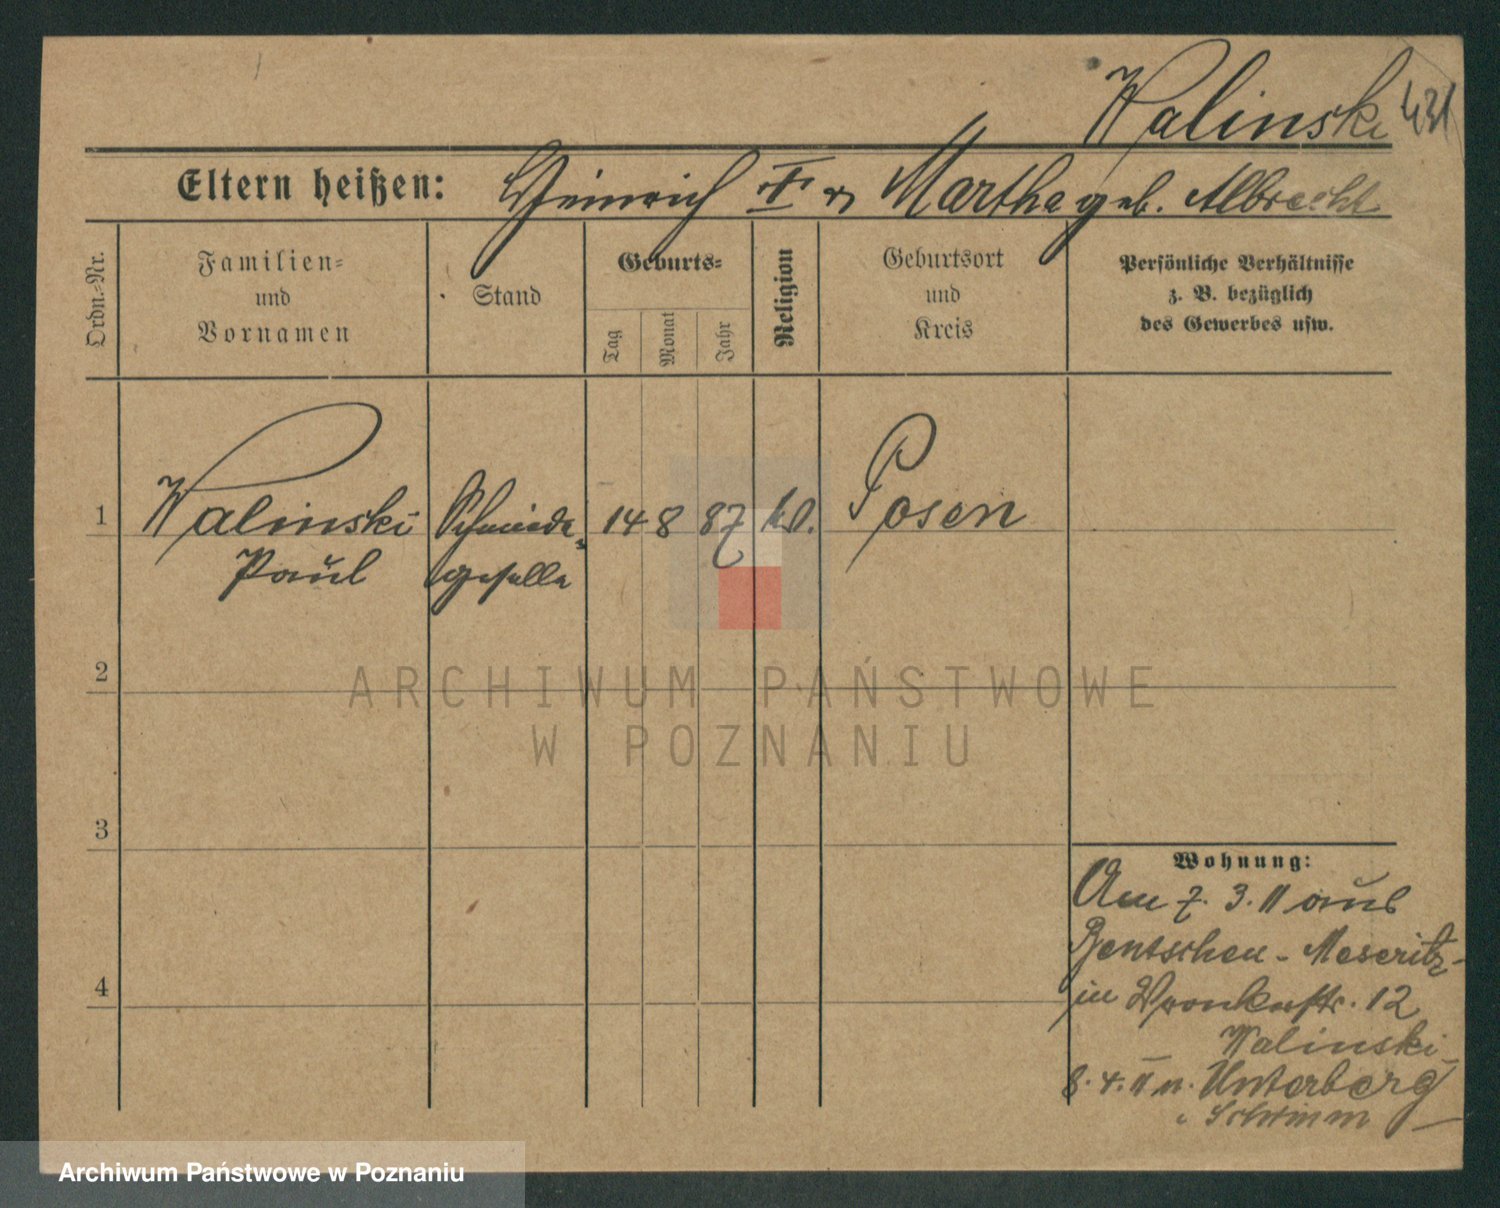 Walinski 431
Eltern heißen: Heinrich I u Martha geb. Albrecht
Ordn.-Nr.
Familien-
und
Vornamen
Stand
Geburts-
Tag
Monat
Jahr
Religion
Geburtsort
und
Kreis
Persönliche Verhältnisse
z. B. bezüglich
des Gewerbes usw.
1 Walinski Schmiede- 14 8 87 Posen
Paul geselle
2
ARCHIWUM PAŃSTWOWE
W POZNANIU
3
4
Wohnung:
Am 7. 3. 11 aus
Bentschen - Meseritz -
in Wronkerstr. 12
Walinski
8. 4. 11 n. Unterberg
Schrimm
Archiwum Państwowe w Poznaniu